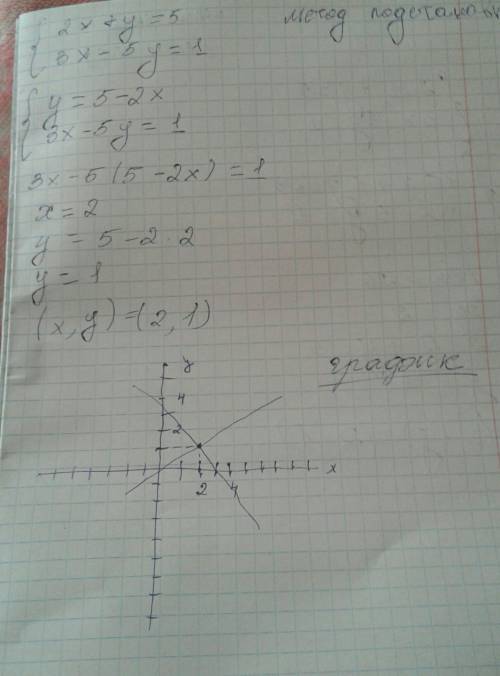 2x+y=5 Метод подстановки
3x-5y=1
y=5-2x
3x-5y=1
3x-5(5-2x)=1
x=2
y=5-2·2
y=1
(x,y)=(2,1)
график
y
4
2
x
2 4